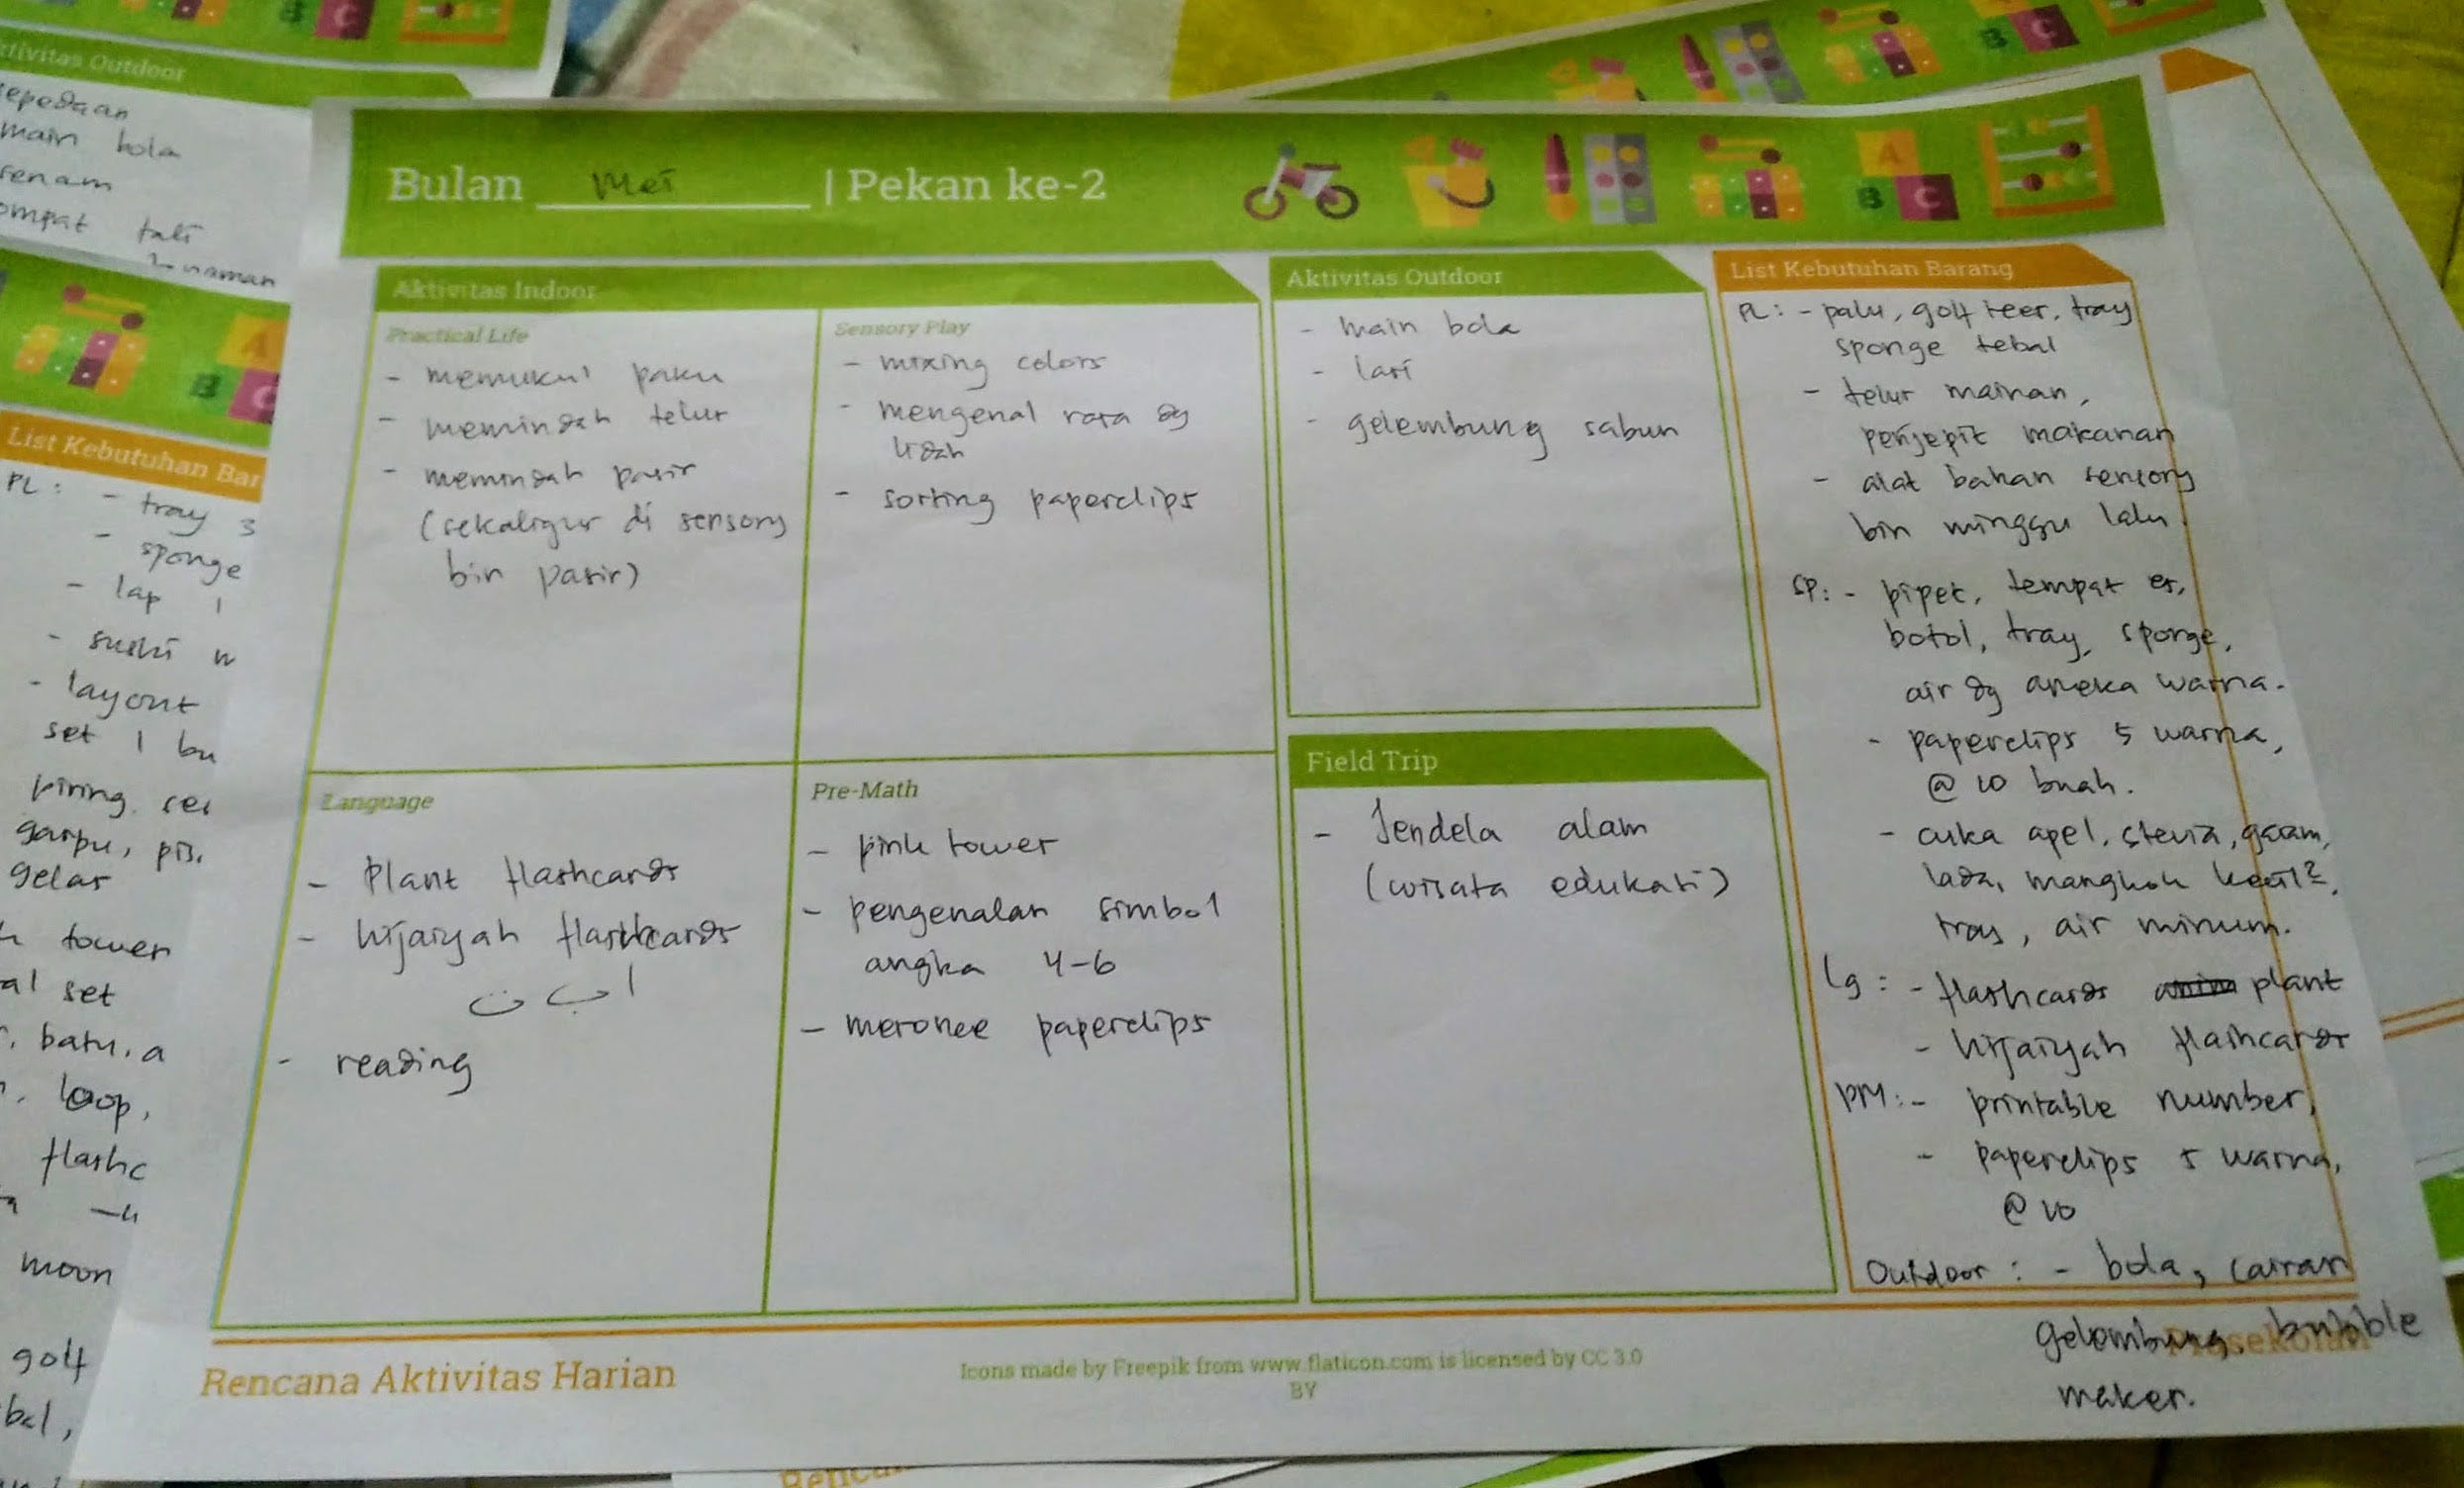 Aktivitas Outdoor
main bola
tali
List Kebutuhan Bar
PL : - tray 3
- sponge
- lap 1
- sushi
- layout
set 1 bu
piring
garpu, pis.
gelas
tower
al set
batu, a
loop,
flashc
moon
golf
Bulan Mei | Pekan ke-2
Aktivitas Indoor
Practical Life
- memukul paku
- memindah telur
- memindah pasir
(sekaligus di sensory
bin pasir)
Sensory Play
- mixing colors
- mengenal rasa dg
lidah
- sorting paperclips
Language
- Plant flashcards
- hijaiyah flashcards
ا ب ت
- reading
Pre-Math
- pink tower
- pengenalan simbol
angka 4-6
- meronce paperclips
Aktivitas Outdoor
- main bola
- lari
- gelembung sabun
Field Trip
- Jendela alam
(wisata edukati)
List Kebutuhan Barang
PL : - palu, golf teer, tray
sponge tebal
- telur mainan,
penjepit makanan
- alat bahan sensory
bin minggu lalu.
SP : - pipet, tempat es,
botol, tray, sponge,
air dg aneka warna.
- paperclips 5 warna,
@ 10 buah.
- cuka apel, stevia, garam,
lada, mangkok kecil2,
tray, air minum.
Lg : - flashcards plant
- hijaiyah flashcards
PM : - printable number,
- paperclips 5 warna,
@ 10
Outdoor : - bola, cairan
gelembung, bubble
maker.
Rencana Aktivitas Harian
Icons made by Freepik from www.flaticon.com is licensed by CC 3.0
BY